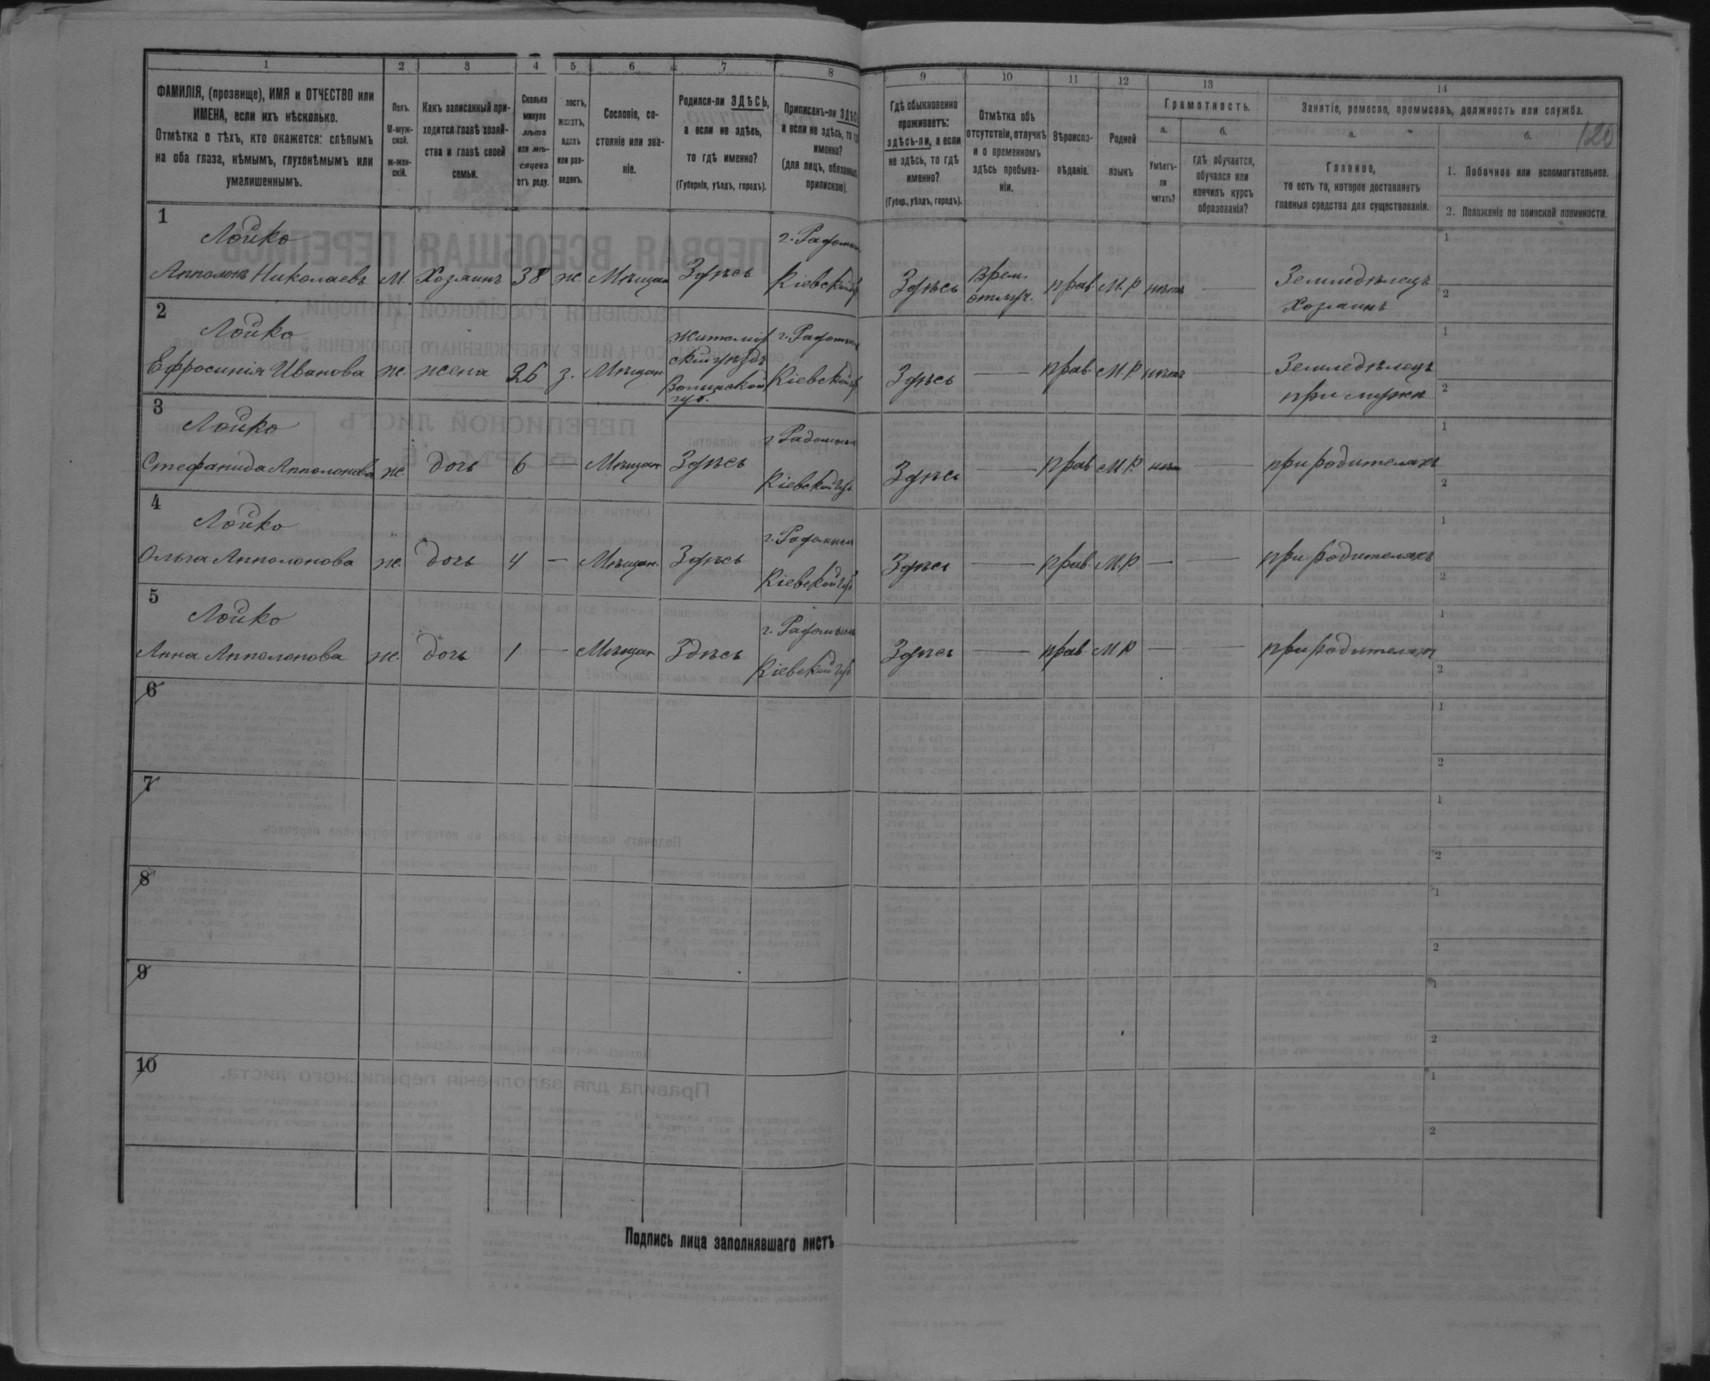 1 2 3 4 5 6 7 8 9 10 11 12 13 14
ФАМИЛІЯ, (прозвище), ИМЯ и ОТЧЕСТВО или
ИМЕНА, если ихъ нѣсколько.
Отмѣтка о тѣхъ, кто окажется: слѣпымъ
на оба глаза, нѣмымъ, глухонѣмымъ или
умалишеннымъ.
Полъ.
М-муж-
ской.
ж-жен-
скій.
Какъ записанный при-
ходится главѣ хозяй-
ства и главѣ своей
семьи.
Сколько
минуло
лѣтъ
или мѣ-
сяцевъ
отъ роду.
лостъ,
женатъ,
вдовъ
или раз-
веденъ.
Сословіе, со-
стояніе или зва-
ніе.
Родился-ли ЗДѢСЬ,
а если не здѣсь,
то гдѣ именно?
(Губернія, уѣздъ, городъ).
Приписанъ-ли ЗДѢСЬ
а если не здѣсь, то гдѣ
именно?
(для лицъ, обязанныхъ
припискою).
Гдѣ обыкновенно
проживаетъ:
здѣсь-ли, а если
не здѣсь, то гдѣ
именно?
(Губер., уѣздъ, городъ).
Отмѣтка объ
отсутствіи, отлучкѣ
и о временномъ
здѣсь пребыва-
ніи.
Вѣроиспо-
вѣданіе.
Родной
языкъ
Грамотность.
а.
Умѣетъ-
ли
читать?
б.
гдѣ обучается,
обучался или
кончилъ курсъ
образованія?
Занятіе, ремесло, промыселъ, должность или служба.
а.
Главное,
то есть то, которое доставляетъ
главныя средства для существованія.
б.
1. Побочное или вспомогательное.
2. Положеніе по воинской повинности.
120
1
Лойко г. Радомысл
Апполонъ Николаевъ М Хозяинъ 38 ж Мѣщан Здѣсь Кіевской г Здѣсь врем. отлуч. прав М.Р нѣтъ — Земледѣлецъ
хозяинъ
1
2
2
Лойко Житомір г. Радомысл
скій уѣздъ
Ефросинія Иванова ж жена 26 з. Мѣщан Волынской Кіевской г Здѣсь — прав М.Р нѣтъ — Земледѣлецъ
губ. при мужѣ
1
2
3
Лойко г Радомысл
Стефанида Апполонова ж дочь 6 — Мѣщан Здѣсь Кіевской гу Здѣсь — прав М.Р нѣтъ — при родителяхъ
1
2
4
Лойко г. Радомысл
Ольга Апполонова ж дочь 4 — Мѣщан. Здѣсь Кіевской гу Здѣсь — прав М.Р — — при родителяхъ
1
2
5
Лойко г. Радомысль
Анна Апполонова ж. дочь 1 — Мѣщан Здѣсь Кіевской гу Здѣсь — прав М.Р — — при родителях
1
2
6
1
2
7
1
2
8
1
2
9
1
2
10
1
2
Подпись лица заполнявшаго листъ